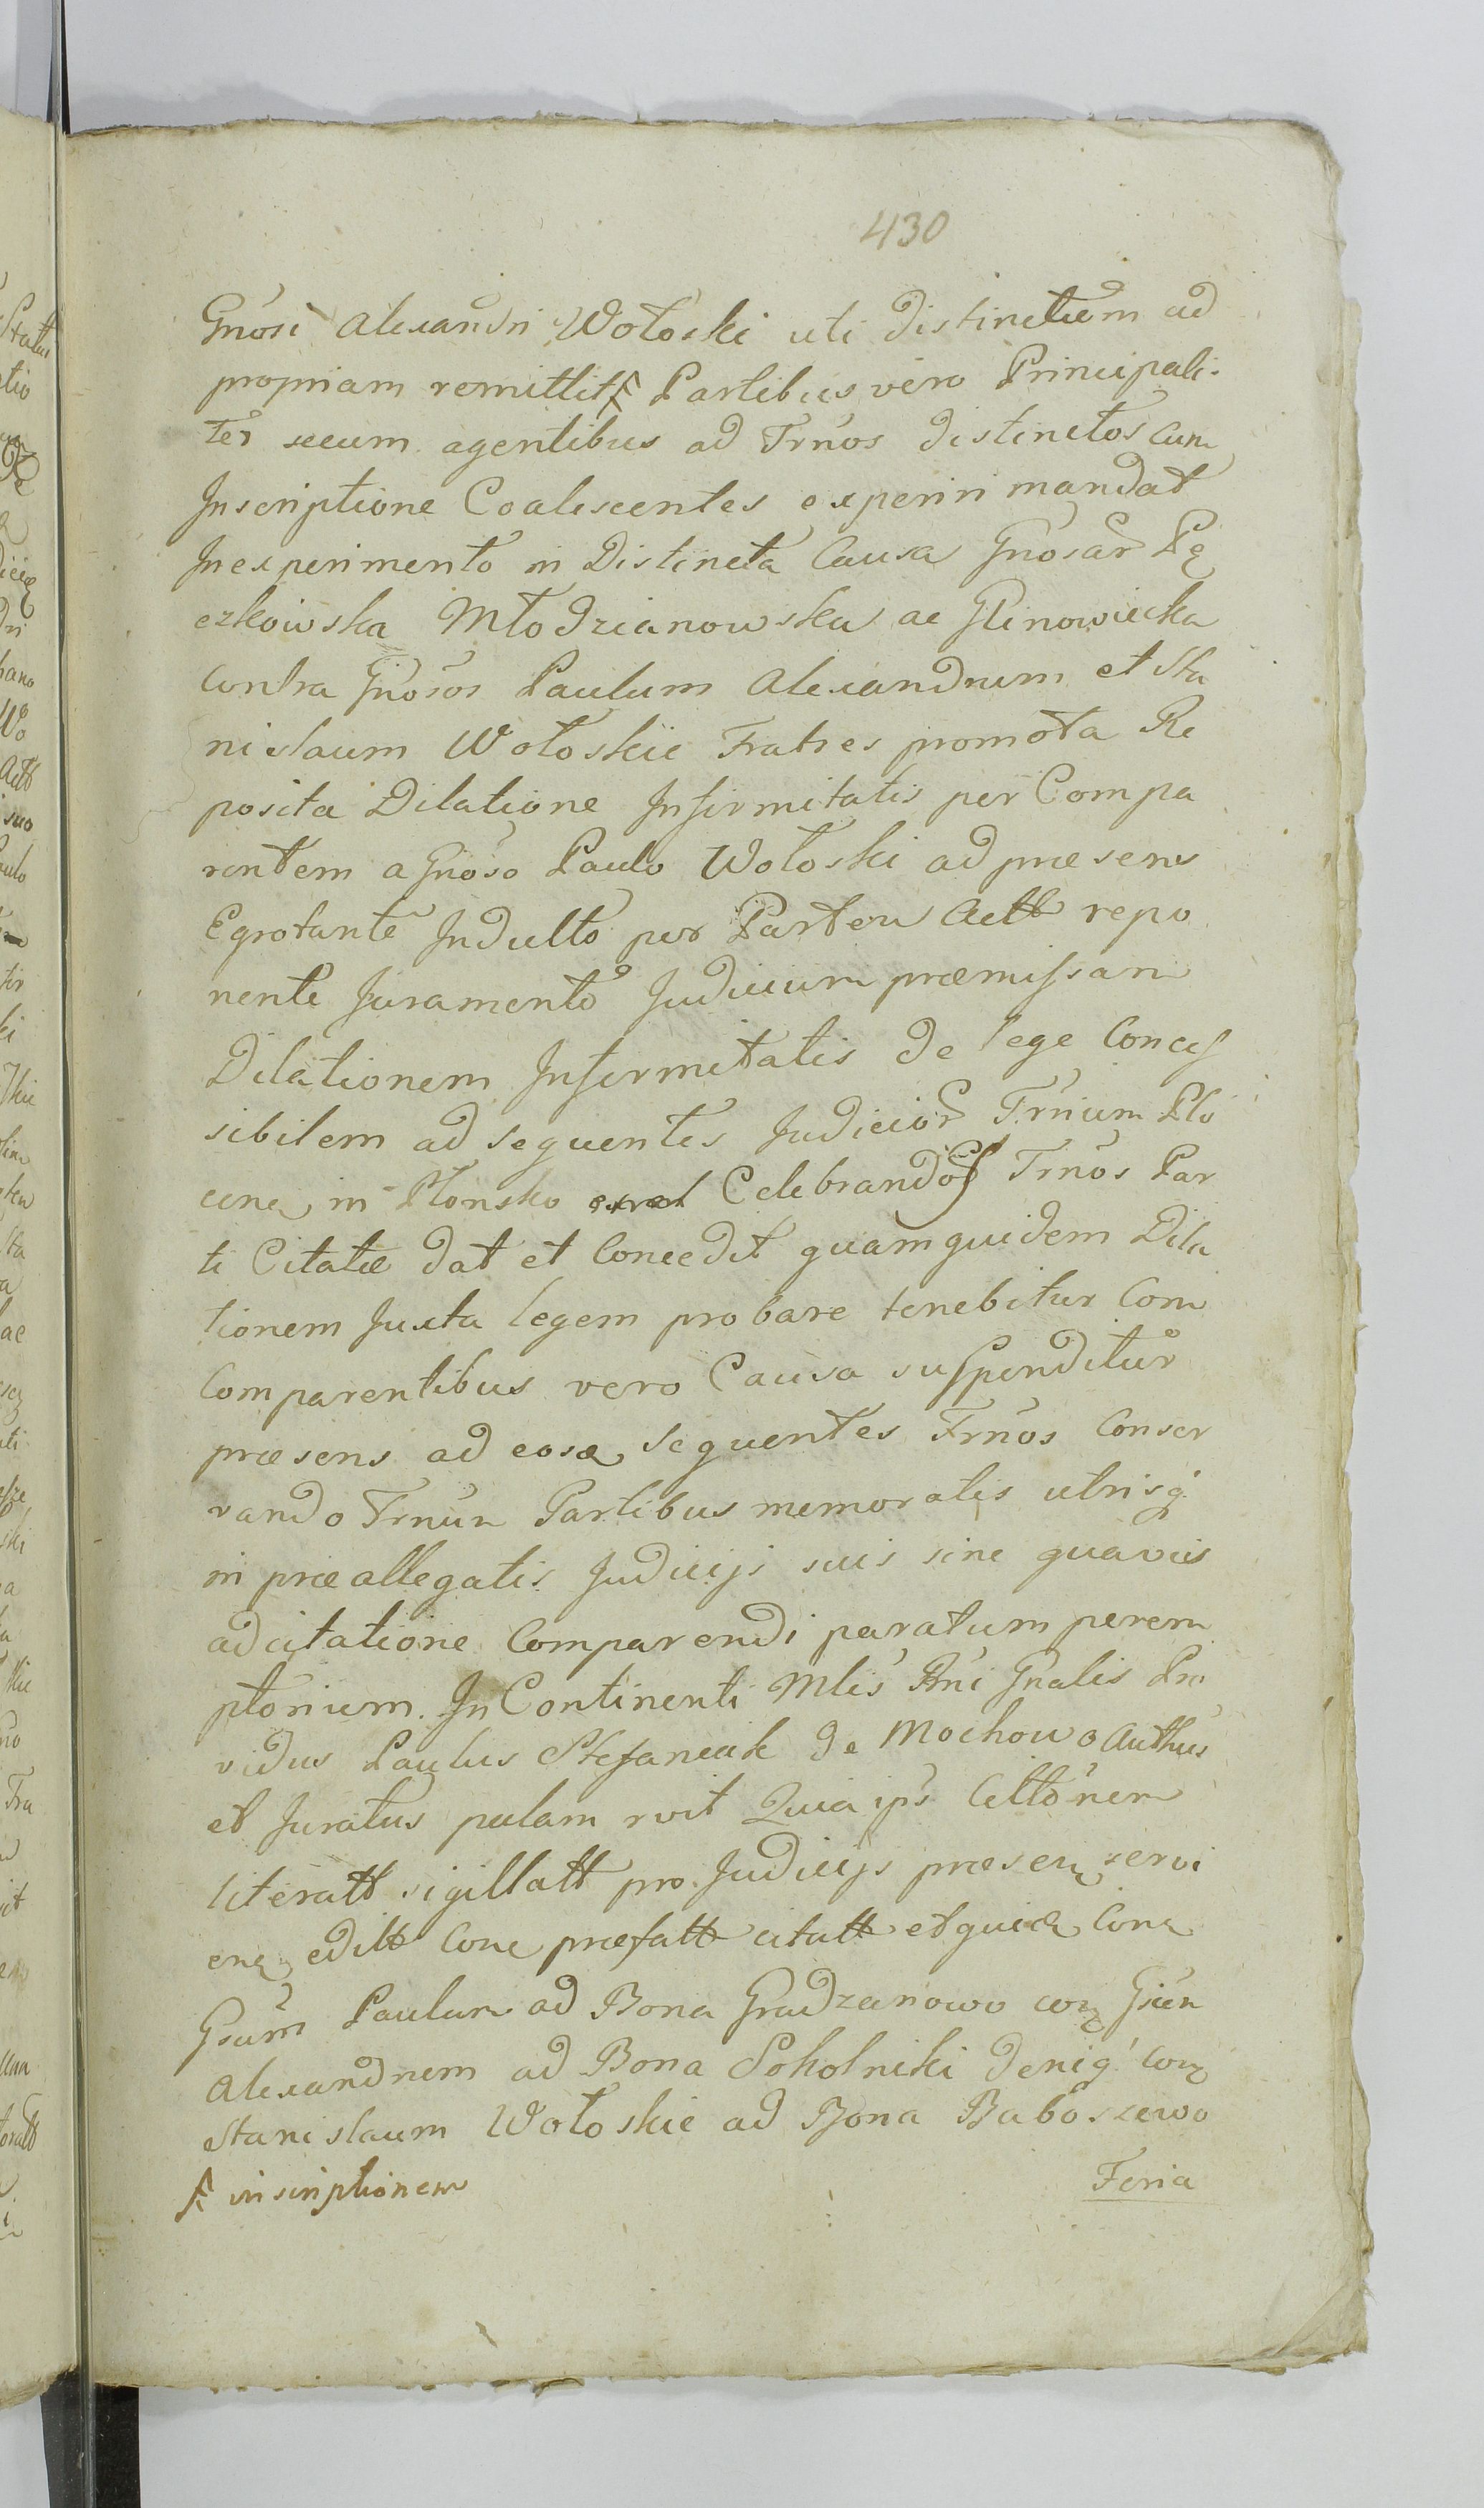 430
Gnosi Alexandri Wołoski uti distinctum ad
propriam remittit Partibus vero Principali-
ter secum agentibus ad Trnos distinctos cum
Inscriptione Coalescentes experiri mandat
In experimento in Distincta Causa Gnosar Pę
czkowska Młodzianowska ac Glinowiecka
contra Gnosos Paulum Alexandrum et Sta
nislaum Wołoskie Fratres promota Re
posita Dilatione Infirmitatis per Compa
rentem a Gnoso Paulo Wołoski ad præsens
Egrotante Indulto per Partem Actt repo
nente Juramento Judicium præmissam
Dilationem Infirmitatis de lege Conces
sibilem ad sequentes Judicior Trnium Plo
cen in Płonsko Celebrandos Trnos Par
ti Citatæ dat et Concedit quamquidem Dila
tionem Juxta legem probare tenebitur Com
Comparentibus vero Causa suspenditur
præsens ad eosq sequentes Trnos Conser
vando Trnum Partibus memoratis utrisq
in præallegatis Judicijs suis sine quavis
adcitatione Comparendi paratum perem
ptorium. In Continenti Mlis Rni Gnalis Pro
vidus Paulus Stefaniak de Mochowo Authus
et Juratus palam rvit Quia ips Cittonem
literatt sigillatt pro Judicijs præsen servi
en editt Con præfatt citatt et quid Con
Gsum Paulum ad Bona Gradzanowo con Gsum
Alexandrem ad Bona Sokolniki deniq con
Stanislaum Wołoskie ad Bona Baboszewo
inscriptionem
Feria